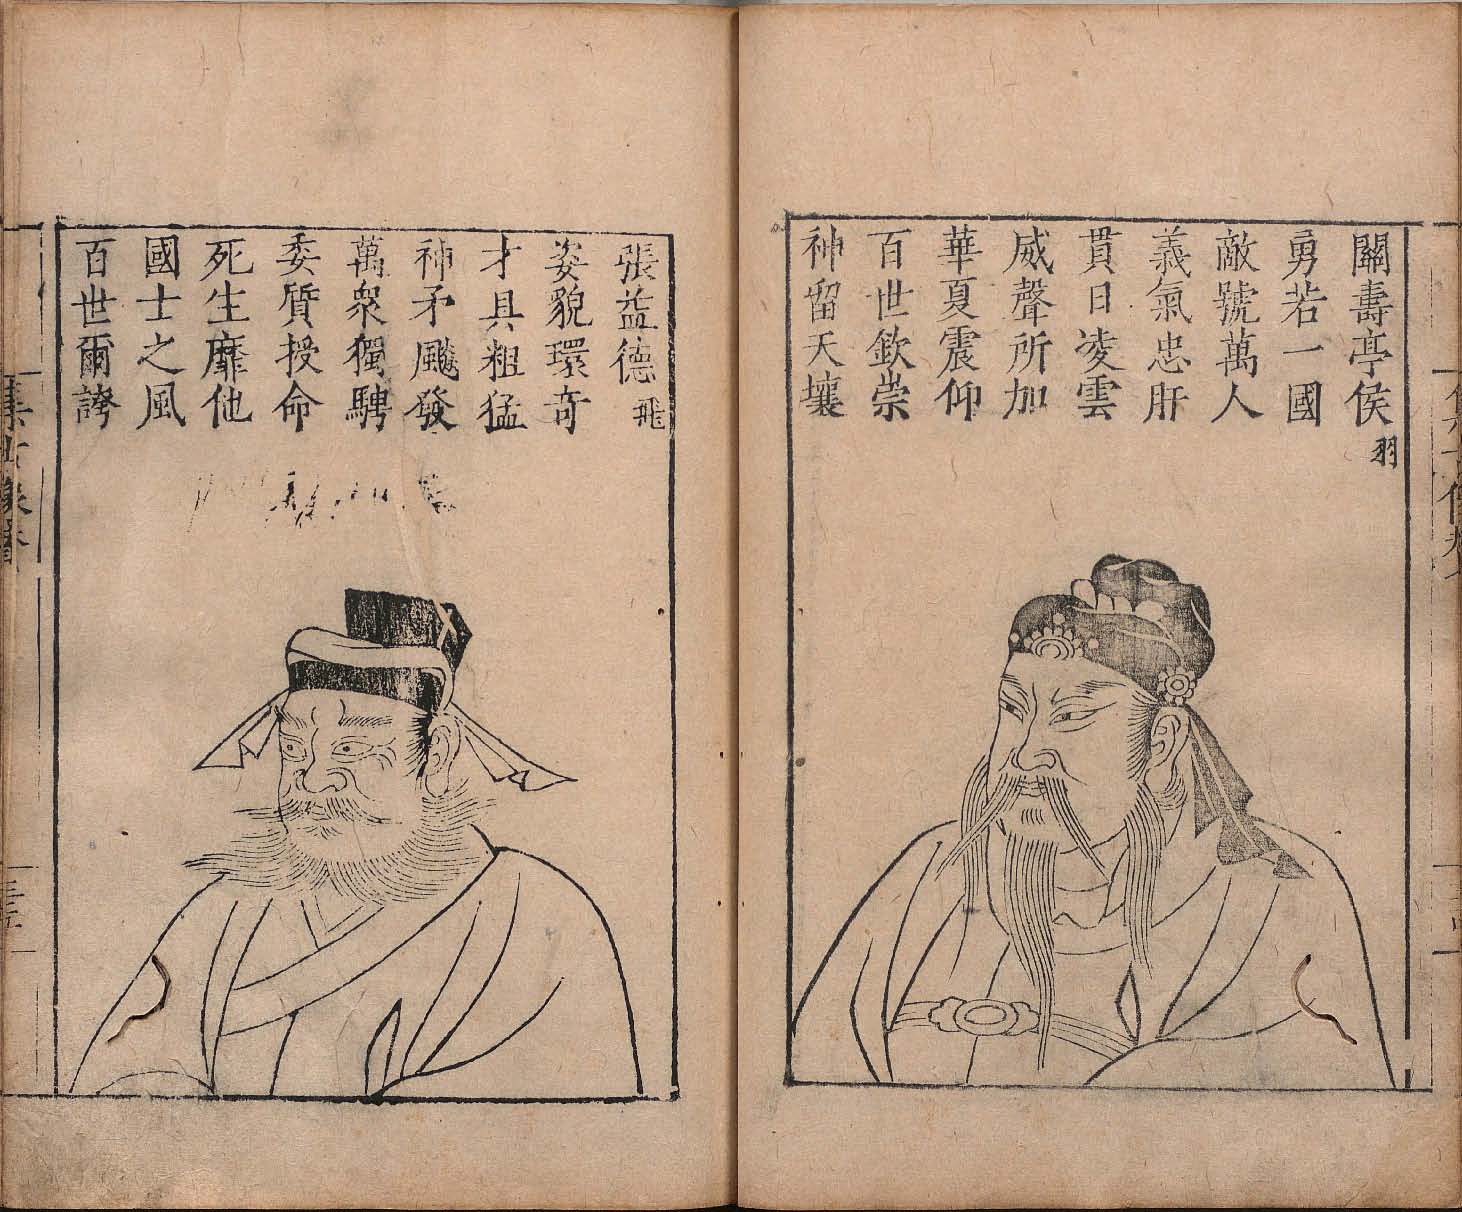 關壽亭侯羽
勇若一國
敵號萬人
義氣忠肝
貫日凌雲
威聲所加
華夏震仰
百世欽崇
神留天壤
張益德飛
姿貌環奇
才具粗猛
神矛飚發
萬衆獨騁
委質授命
死生靡他
國士之風
百世爾誇